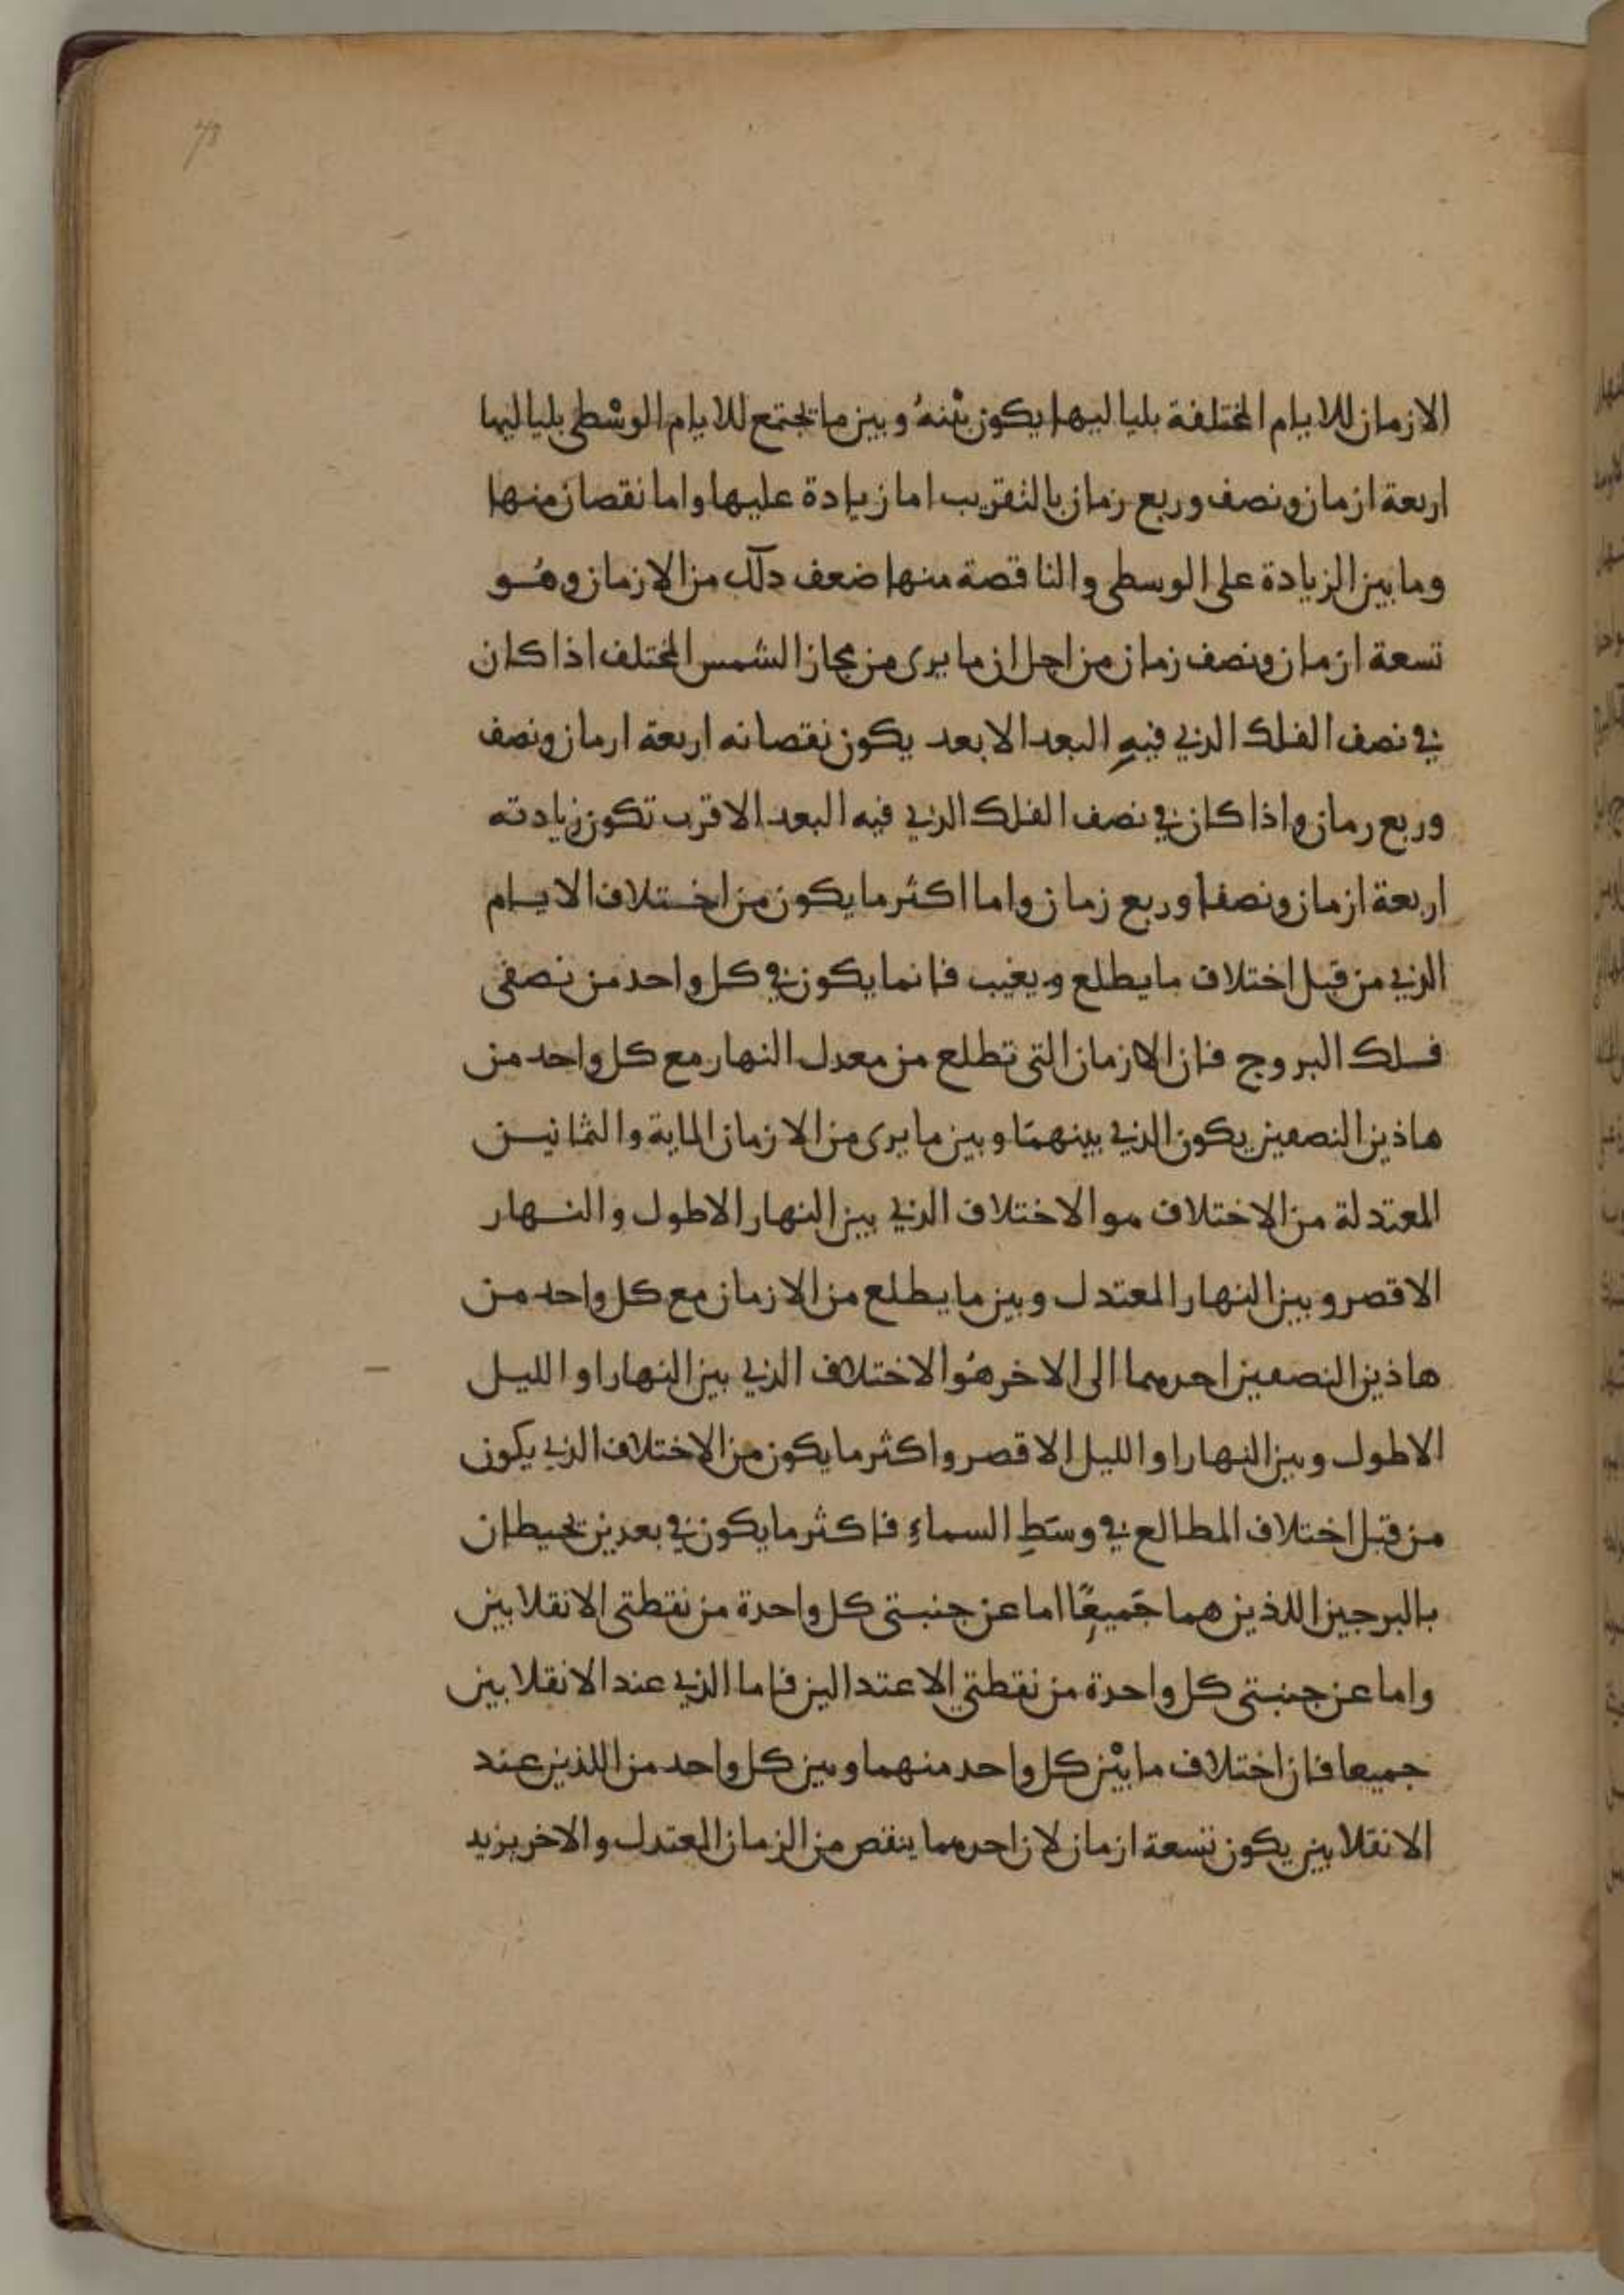 78
الازمان للايام المختلفة بلياليها يكون بيْنهُ وبين ما تجتمع للايام الوسْطى بلياليها
اربعة ازمان ونصف وربع زمان بالتقريب اما زيادة عليها واما نقصان منها
وما بين الزيادة على الوسطى والناقصة منها ضعف ذلك من الازمان وهُو
تسعة ازمان ونصف زمان من اجل ان ما يرى من مجاز الشمس المختلف اذا كان
في نصف الفلك الذي فيهِ البعد الابعد يكون نقصانه اربعة ارمان ونصف
وربع رمان واذا كان في نصف الفلك الذي فيه البعد الاقرب تكون زيادته
اربعة ازمان ونصفا وربع زمان واما اكثر ما يكون من اختلاف الايام
الذي من قبل اختلاف ما يطلع ويغيب فانما يكون في كل واحد من نصفى
فلك البروج فان الازمان التى تطلع من معدل النهار مع كل واحد من
هاذين النصفين يكون الذي بينهمَا وبين ما يرى من الازمان الماية والثمانين
المعتدلة من الاختلاف هو الاختلاف الذي بين النهار الاطول والنهار
الاقصر وبين النهار المعتدل وبين ما يطلع من الازمان مع كل واحد من
هاذين النصفين احدهما الى الاخر هُو الاختلاف الذي بين النهار او الليل
الاطول وبين النهار او الليل الاقصر واكثر ما يكون من الاختلاف الذي يكون
من قبل اختلاف المطالع في وسَطِ السماءِ فاكثر ما يكون في بعدين تحيطان
بالبرجين اللذين هما جَميعًا اما عن جنبتى كل واحدة من نقطتى الانقلابين
واما عن جنبتى كل واحدة من نقطتي الاعتدالين فاما الذي عند الانقلابين
جميعا فان اختلاف ما بيْن كل واحد منهما وبين كل واحد من اللذين عند
الانقلابين يكون تسعة ازمان لان احدهما ينقص من الزمان المعتدل والاخر يزيد